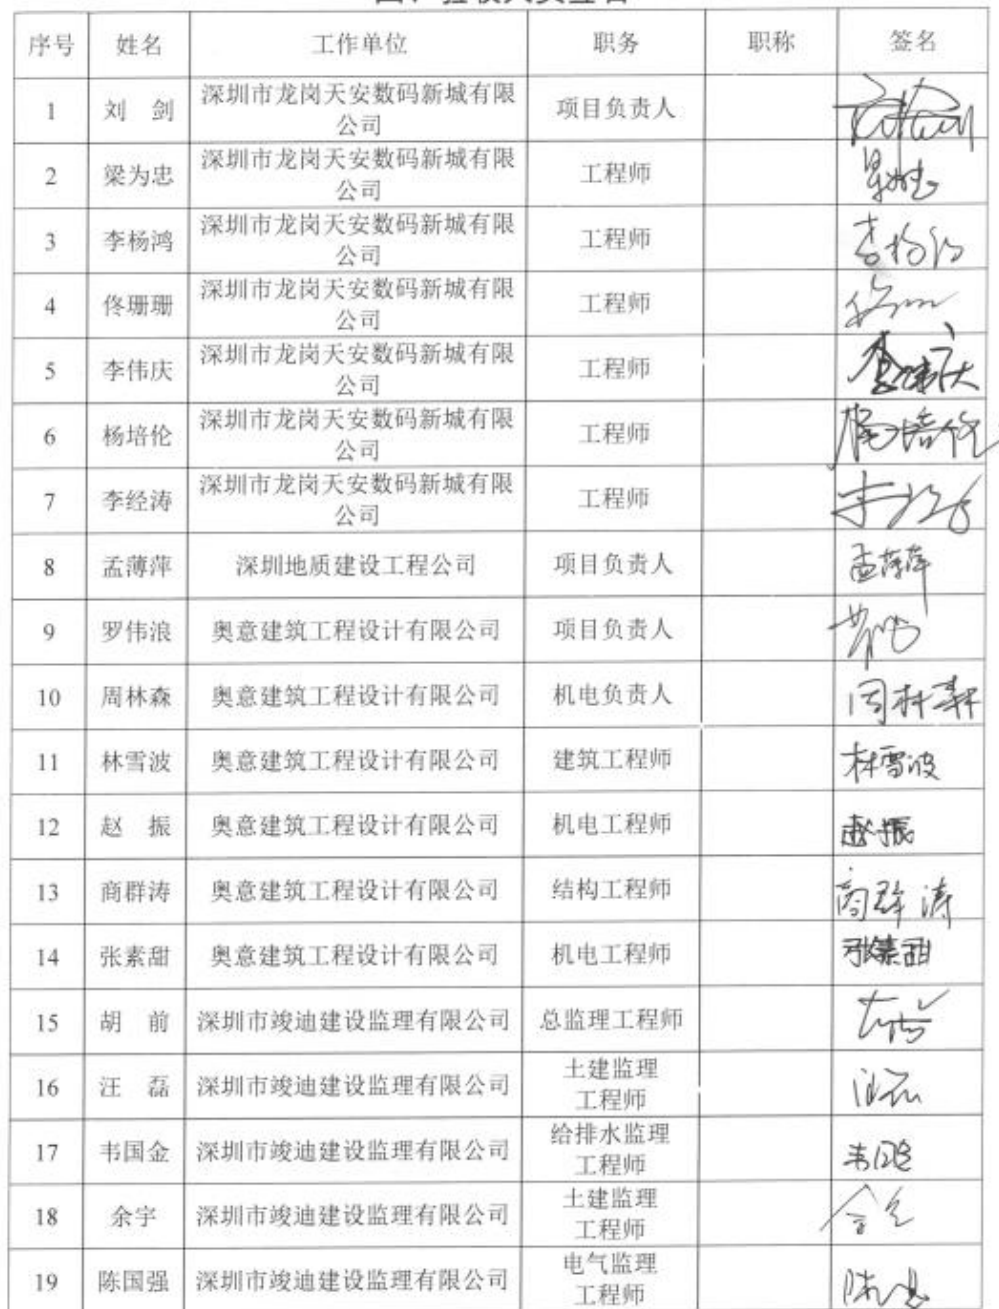 四、验收人员签名
序号 姓名 工作单位 职务 职称 签名
1 刘 剑 深圳市龙岗天安数码新城有限 项目负责人
公司
2 梁为忠 深圳市龙岗天安数码新城有限 工程师
公司
3 李杨鸿 深圳市龙岗天安数码新城有限 工程师
公司
4 佟珊珊 深圳市龙岗天安数码新城有限 工程师
公司
5 李伟庆 深圳市龙岗天安数码新城有限 工程师 李伟庆
公司
6 杨培伦 深圳市龙岗天安数码新城有限 工程师 杨培伦
公司
7 李经涛 深圳市龙岗天安数码新城有限 工程师
公司
8 孟薄萍 深圳地质建设工程公司 项目负责人 孟薄萍
9 罗伟浪 奥意建筑工程设计有限公司 项目负责人
10 周林森 奥意建筑工程设计有限公司 机电负责人 周林森
11 林雪波 奥意建筑工程设计有限公司 建筑工程师 林雪波
12 赵 振 奥意建筑工程设计有限公司 机电工程师 赵振
13 商群涛 奥意建筑工程设计有限公司 结构工程师 商群涛
14 张素甜 奥意建筑工程设计有限公司 机电工程师 张素甜
15 胡 前 深圳市竣迪建设监理有限公司 总监理工程师
16 汪 磊 深圳市竣迪建设监理有限公司 土建监理
工程师
17 韦国金 深圳市竣迪建设监理有限公司 给排水监理
工程师
18 余宇 深圳市竣迪建设监理有限公司 土建监理
工程师
19 陈国强 深圳市竣迪建设监理有限公司 电气监理
工程师